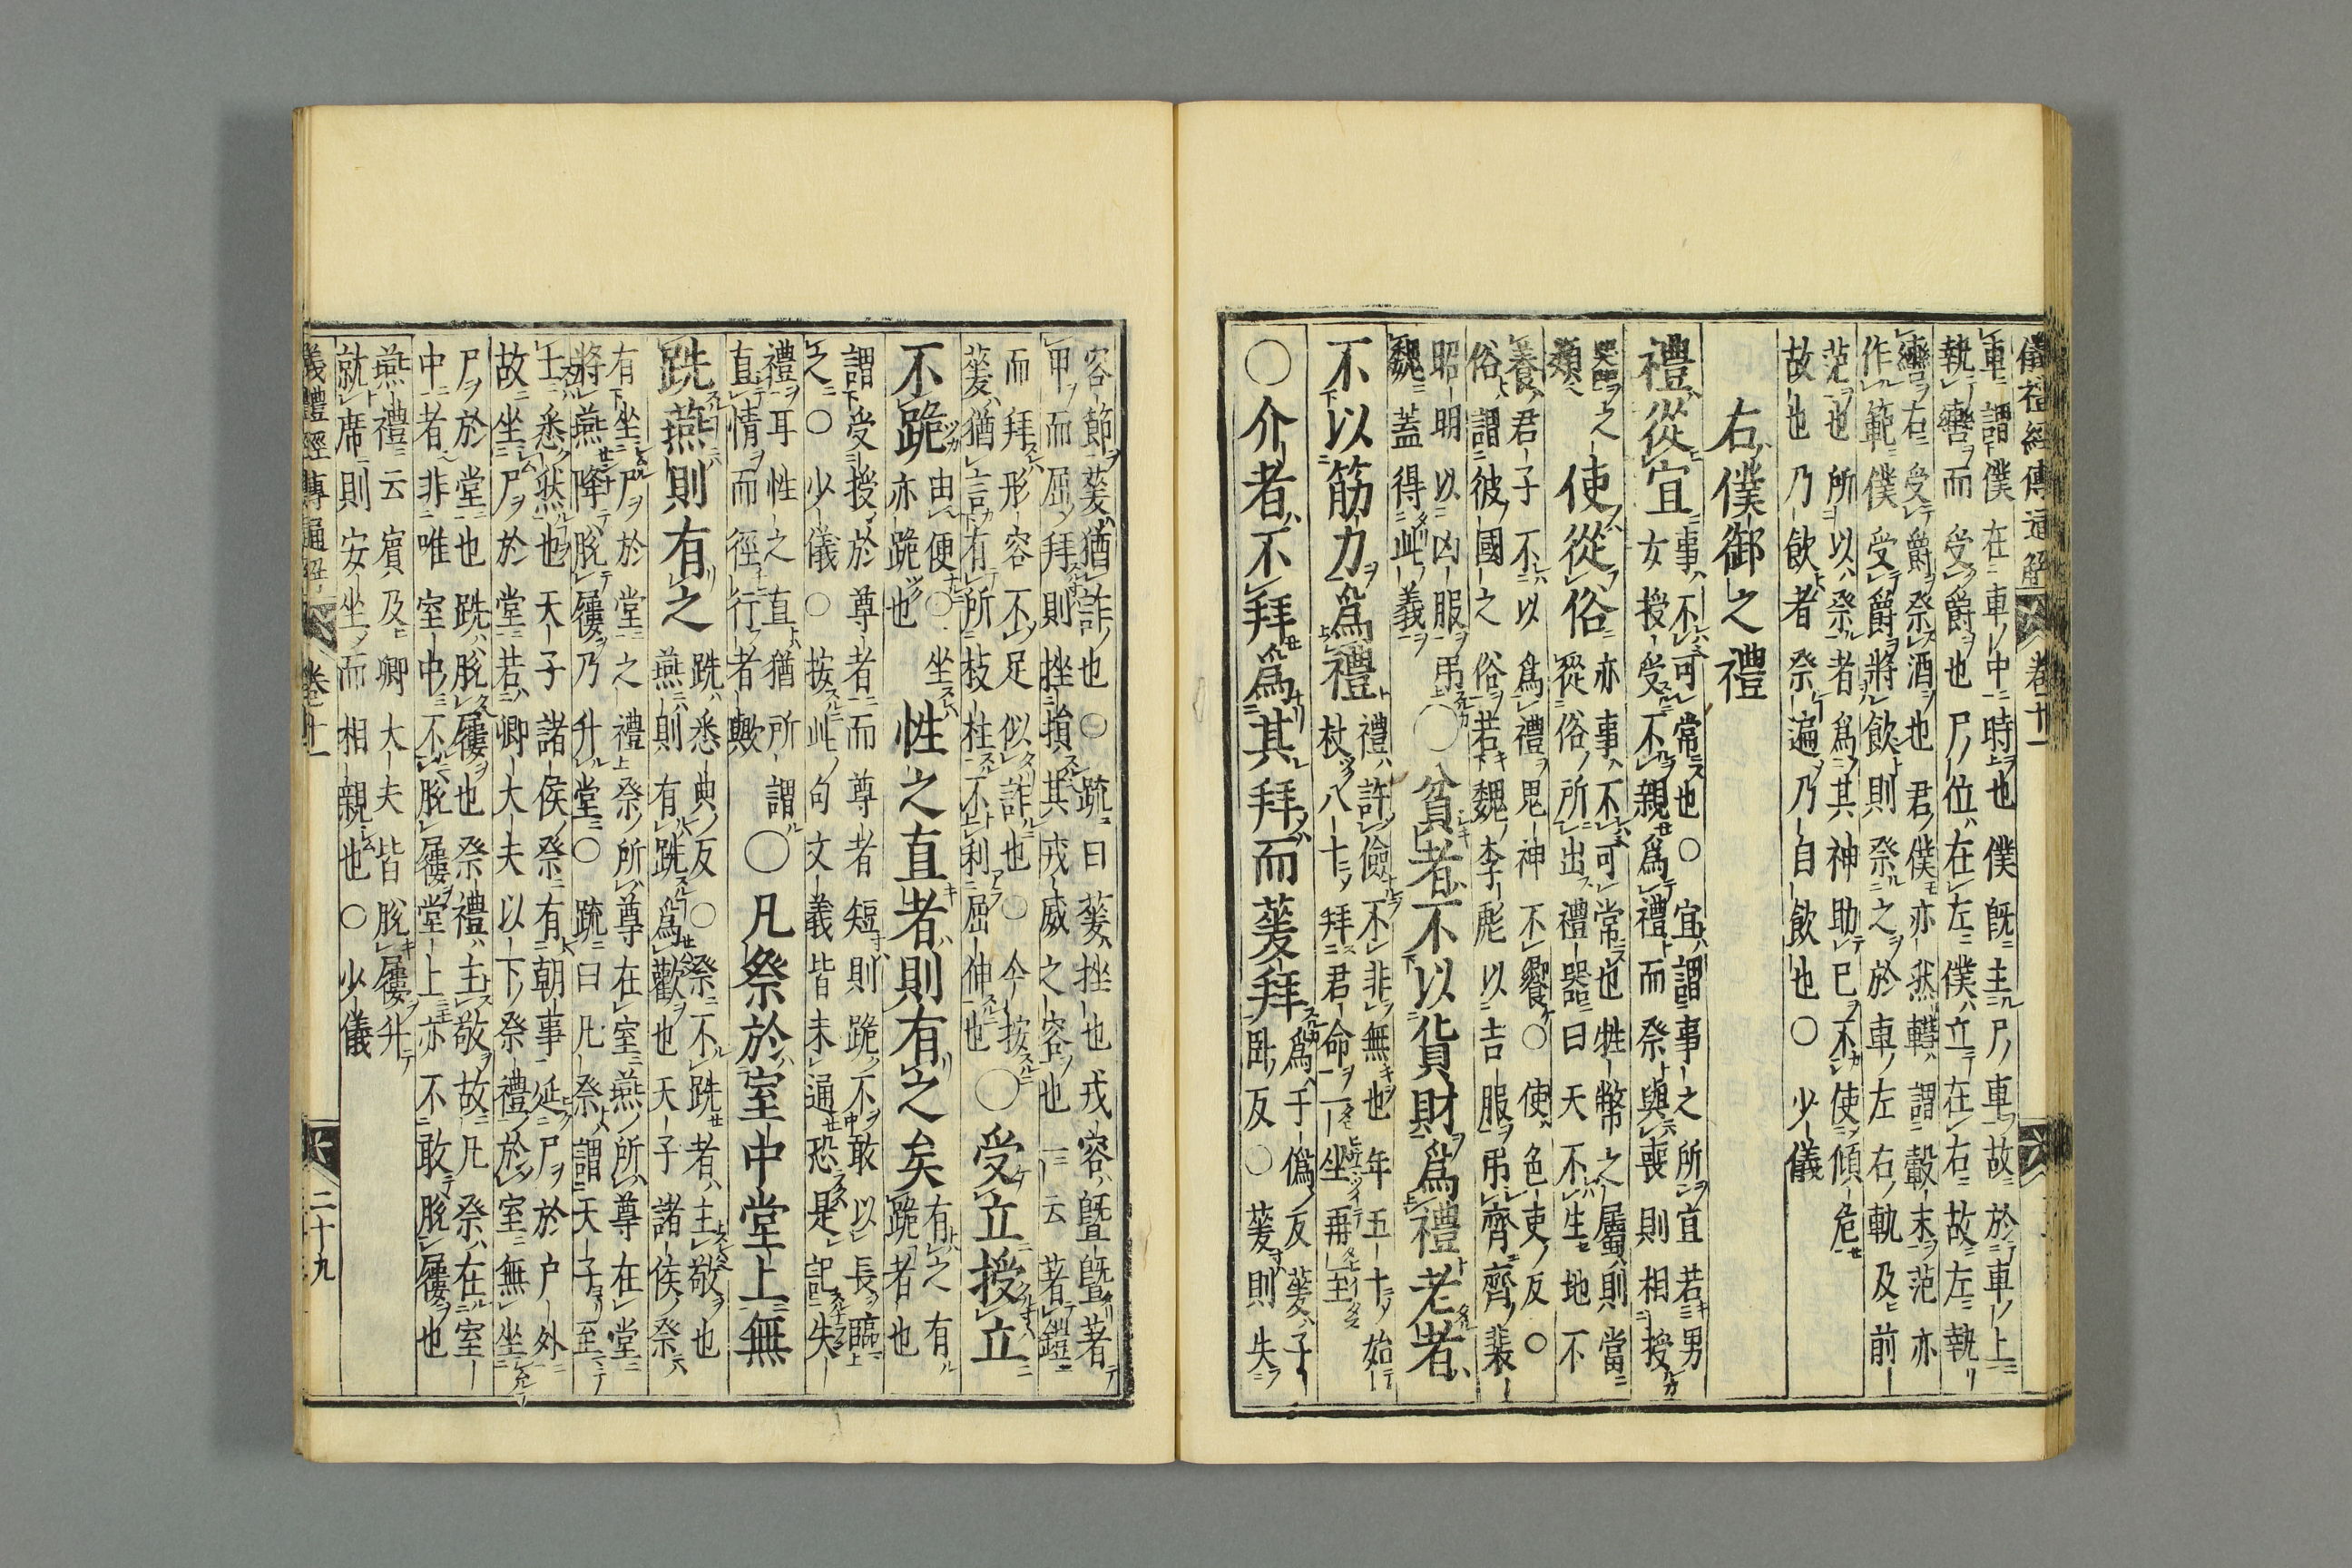 儀禮經傳通解 卷十一
車謂僕在車中時也僕既主尸車故於車上
執轡而受爵也尸位在左僕立在右故左執
轡右受爵祭酒也君僕亦然轊謂轂末范亦
作範僕受爵將飲則祭之於車左右軌及前
范也所以祭者爲其神助已不使傾危
故也乃飲者祭遍乃自飲也○少儀
右僕御之禮
禮從宜
事不可常也○宜謂事之所宜若男
女授受不親爲禮而祭與喪則相授
器之
類
使從俗
亦事不可常也牲幣之屬則當
從俗所出禮器曰天不生地不
養君子不以爲禮鬼神不饗○使色吏反○
俗謂彼國之俗若魏李彪以吉服弔齊齊裴
昭明以凶服弔
魏蓋得此義
○貧者不以貨財爲禮老者
不以筋力爲禮
禮許儉不非無也年五十始
杖八十拜君命一坐再至
○介者不拜爲其拜而蓌拜
爲于僞反蓌子
臥反○蓌則失
容節蓌猶詐也○疏曰蓌挫也戎容暨暨著
甲而屈拜則挫損其戎威之容也一云著鎧
而拜形容不足似詐也○今按
蓌猶言有所枝柱不利屈伸也
○受立授立
不跪
由便○坐
亦跪也
性之直者則有之矣
有之有
跪者也
謂受授於尊者而尊者短則跪不敢以長臨
之○少儀○按此句文義皆未通恐是記失
禮耳性之直猶所謂
直情而徑行者歟
○凡祭於室中堂上無
跣燕則有之
跣悉典反○祭不跣者主敬也
燕則有跣爲歡也天子諸侯祭
有坐尸於堂之禮祭所尊在室燕所尊在堂
將燕降脫屨乃升堂○疏曰凡祭謂天子至
士悉然也天子諸侯祭有朝事延尸於户外
故坐尸於堂若卿大夫以下祭禮於室無坐
尸於堂也跣脫屨也祭禮主敬故凡祭在室
中者非唯室中不脫屨堂上亦不敢脫屨也
燕禮云賓及卿大夫皆脫屨升
就席則安坐而相親也○少儀
儀禮經傳通解 卷十一 二十九